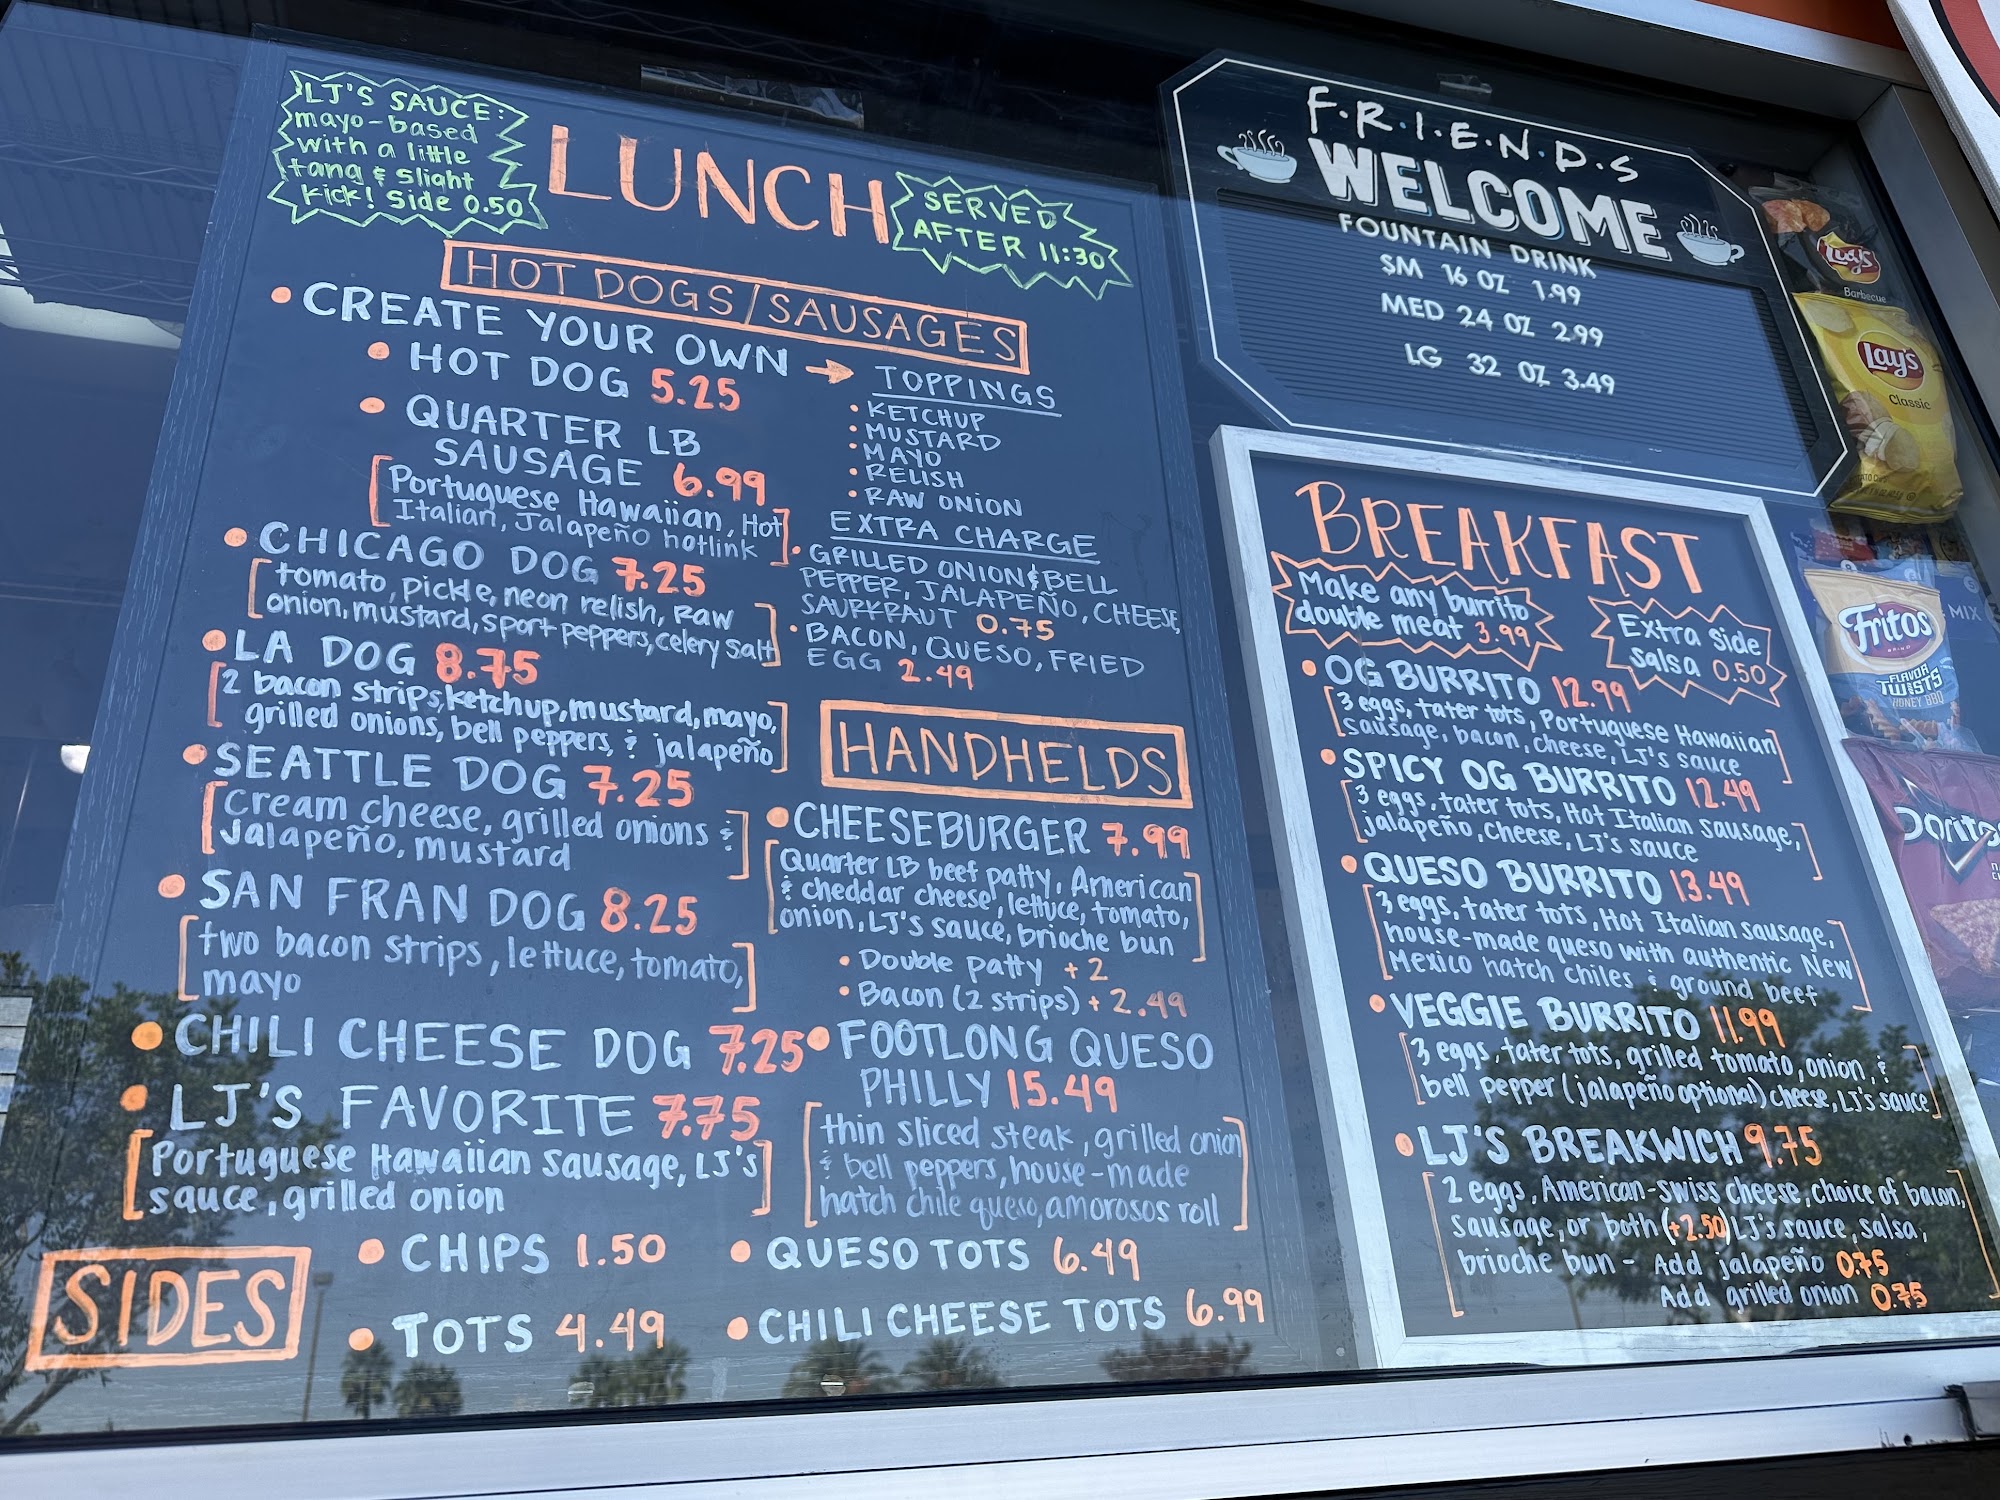 LJ'S SAUCE:
mayo-based
with a little
tang & slight
kick! Side 0.50
LUNCH
SERVED
AFTER 11:30
HOT DOGS/SAUSAGES
• CREATE YOUR OWN →
• HOT DOG 5.25
• QUARTER LB
SAUSAGE 6.99
[Portuguese Hawaiian, Hot
Italian, Jalapeño hotlink]
• CHICAGO DOG 7.25
[tomato, pickle, neon relish, raw
onion, mustard, sport peppers, celery salt]
• LA DOG 8.75
[2 bacon strips, ketchup, mustard, mayo,
grilled onions, bell peppers, & jalapeño]
• SEATTLE DOG 7.25
[Cream cheese, grilled onions &
Jalapeño, mustard]
• SAN FRAN DOG 8.25
[two bacon strips, lettuce, tomato,
mayo]
• CHILI CHEESE DOG 7.25
• LJ'S FAVORITE 7.75
[Portuguese Hawaiian sausage, LJ's
sauce, grilled onion]
TOPPINGS
• KETCHUP
• MUSTARD
• MAYO
• RELISH
• RAW ONION
EXTRA CHARGE
• GRILLED ONION & BELL
PEPPER, JALAPEÑO, CHEESE,
SAURKRAUT 0.75
• BACON, QUESO, FRIED
EGG 2.49
HANDHELDS
• CHEESEBURGER 7.99
[Quarter LB beef patty, American
& cheddar cheese, lettuce, tomato,
onion, LJ's sauce, brioche bun]
• Double patty +2
• Bacon (2 strips) + 2.49
• FOOTLONG QUESO
PHILLY 15.49
[thin sliced steak, grilled onion
& bell peppers, house-made
hatch chile queso, amorosos roll]
SIDES
• CHIPS 1.50
• QUESO TOTS 6.49
• TOTS 4.49
• CHILI CHEESE TOTS 6.99
F·R·I·E·N·D·S
WELCOME
FOUNTAIN DRINK
SM 16 OZ 1.99
MED 24 OZ 2.99
LG 32 OZ 3.49
BREAKFAST
Make any burrito
double meat 3.99
Extra side
salsa 0.50
• OG BURRITO 12.99
[3 eggs, tater tots, Portuguese Hawaiian
sausage, bacon, cheese, LJ's sauce]
• SPICY OG BURRITO 12.49
[3 eggs, tater tots, Hot Italian sausage,
jalapeño, cheese, LJ's sauce]
• QUESO BURRITO 13.49
[3 eggs, tater tots, Hot Italian sausage,
house-made queso with authentic New
Mexico hatch chiles & ground beef]
• VEGGIE BURRITO 11.99
[3 eggs, tater tots, grilled tomato, onion, &
bell pepper (jalapeño optional) cheese, LJ's sauce]
• LJ'S BREAKWICH 9.75
[2 eggs, American-swiss cheese, choice of bacon,
sausage, or both (+2.50) LJ's sauce, salsa,
brioche bun - Add jalapeño 0.75
Add grilled onion 0.75]
Lay's
Barbecue
Lay's
Classic
Fritos
FLAVOR
TWISTS
HONEY BBQ
MIX
Doritos